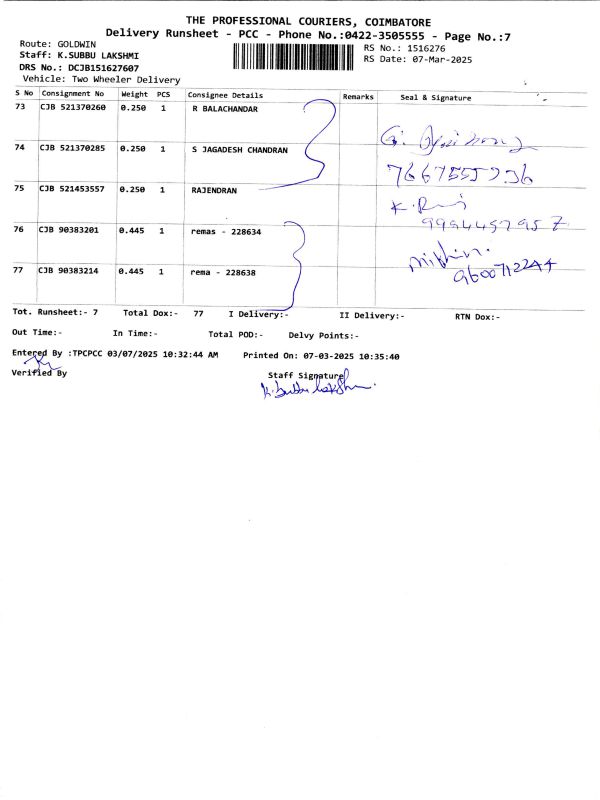 THE PROFESSIONAL COURIERS, COIMBATORE
Delivery Runsheet - PCC - Phone No.:0422-3505555 - Page No.:7
Route: GOLDWIN
RS No.: 1516276
Staff: K.SUBBU LAKSHMI
RS Date: 07-Mar-2025
DRS No.: DCJB151627607
Vehicle: Two Wheeler Delivery
S No Consignment No Weight PCS Consignee Details Remarks Seal & Signature
73 CJB 521370260 0.250 1 R BALACHANDAR
74 CJB 521370285 0.250 1 S JAGADESH CHANDRAN
7667555936
75 CJB 521453557 0.250 1 RAJENDRAN
K.
76 CJB 90383201 0.445 1 remas - 228634
Nithin.
9600712244
77 CJB 90383214 0.445 1 rema - 228638
Tot. Runsheet:- 7 Total Dox:- 77 I Delivery:- II Delivery:- RTN Dox:-
Out Time:- In Time:- Total POD:- Delvy Points:-
Entered By :TPCPCC 03/07/2025 10:32:44 AM Printed On: 07-03-2025 10:35:40
Verified By Staff Signature
K. Subbu Lakshmi.